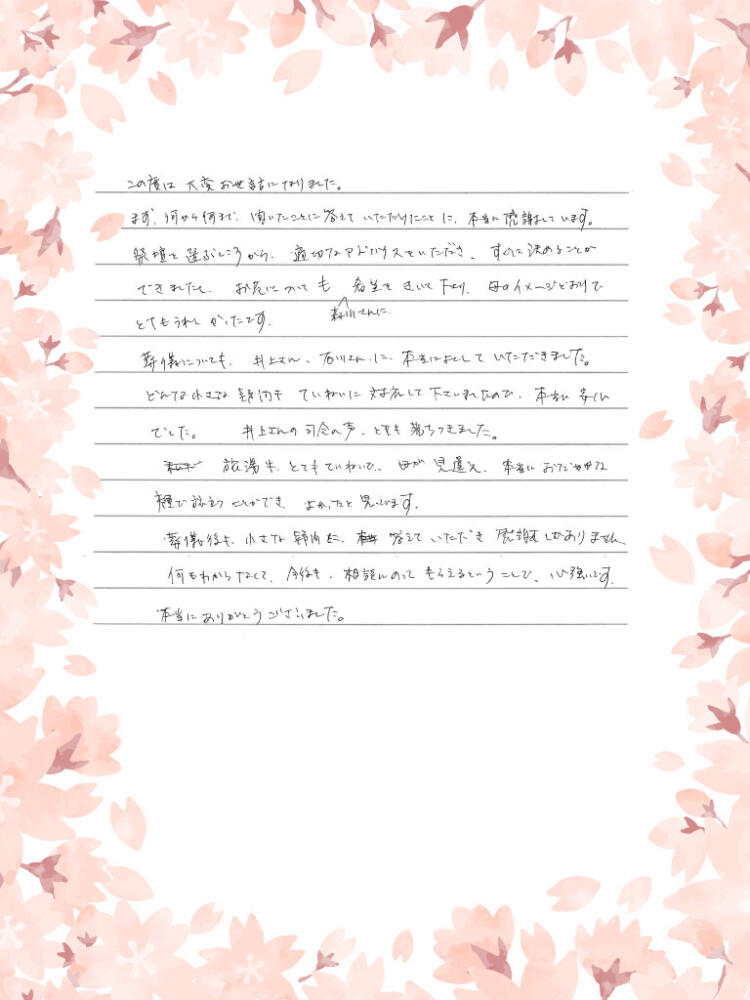 この度は大変お世話になりました。
まず、何から何まで、聞いたことに答えていただけたことに、本当に感謝しています。
祭壇を選ぶところから、適切なアドバイスをいただき、すぐに決めることが
できましたし、お花についても 希望をきいて下さり、母のイメージどおりで
とてもうれしかったです。 森川さんに
葬儀についても、井上さん、石川さんに、本当によくしていただきました。
どんな小さな質問もていねいに対応して下さいましたので、本当に安心
でした。 井上さんの司会の声、とても落ちつきました。
旅湯も、とてもていねいで、母が見違え、本当におだやかな
顔で旅立つことができ、よかったと思います。
葬儀後も、小さな質問に、答えていただき感謝しかありません
何もわからなくて、今後も、相談にのってもらえるということで、心強いです。
本当にありがとうございました。